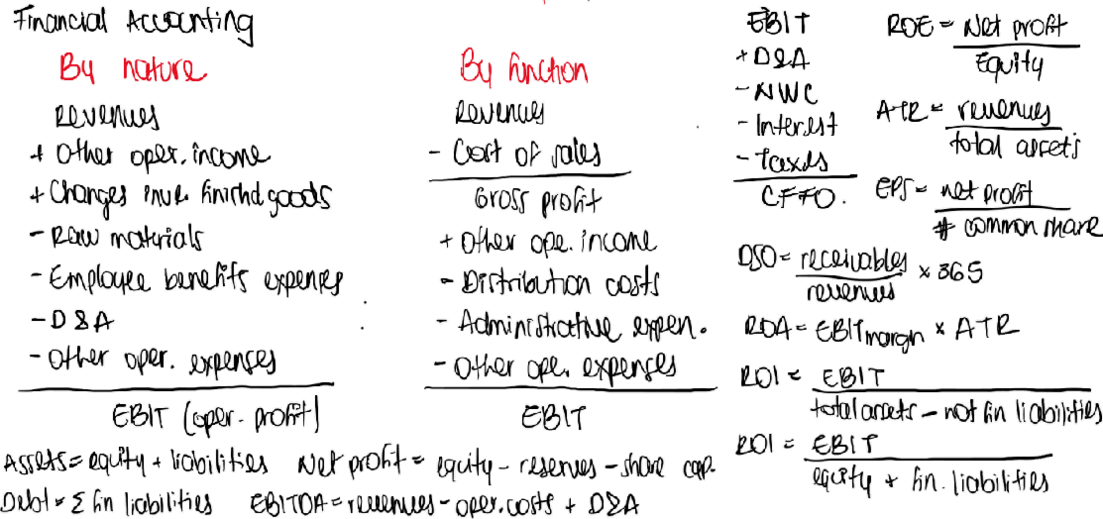 Financial Accounting
By nature
Revenues
+ Other oper. income
+ Changes inve. finishd goods
- Raw materials
- Employee benefits expenses
- D&A
- Other oper. expenses
EBIT (oper. profit)
By function
Revenues
- Cost of sales
Gross profit
+ Other ope. income
- Distribution costs
- Administrative expen.
- Other ope. expenses
EBIT
EBIT
+ D&A
- NWC
- Interest
- Taxes
CFFO.
ROE = Net profit
Equity
ATR = revenues
total assets
EPS = net profit
# common share
DSO = receivables × 365
revenues
ROA = EBIT margin × ATR
ROI = EBIT
total assets - not fin liabilities
ROI = EBIT
equity + fin. liabilities
Assets = equity + liabilities Net profit = equity - reserves - share cap.
Debt = Σ fin liabilities EBITDA = revenues - oper. costs + D&A